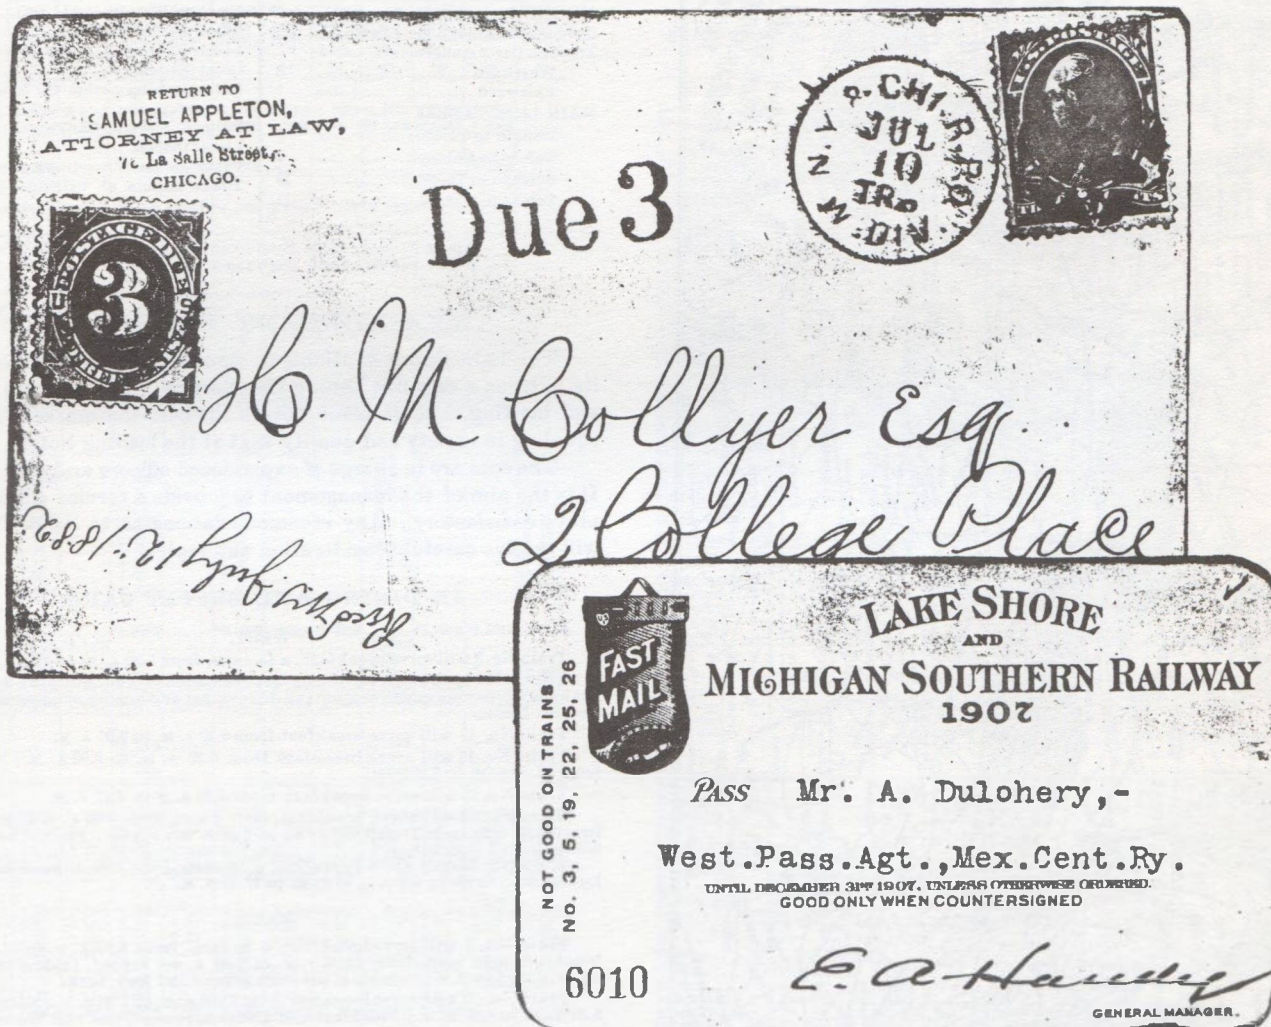 RETURN TO
SAMUEL APPLETON,
ATTORNEY AT LAW,
La Salle Street,
CHICAGO.
Due 3
N.Y. & CHI. R.P.O.
JUL
10
TR
M. DIV.
U.S. POSTAGE
POSTAGE DUE
3
THREE CENTS
H. M. Collyer Esq.
2 College Place
Rec'd July 12" 1882.
LAKE SHORE
AND
MICHIGAN SOUTHERN RAILWAY
1907
FAST
MAIL
NOT GOOD ON TRAINS
No. 3, 5, 19, 22, 25, 26
PASS Mr. A. Dulohery,-
West.Pass.Agt.,Mex.Cent.Ry.
UNTIL DECEMBER 31ST 1907, UNLESS OTHERWISE ORDERED.
GOOD ONLY WHEN COUNTERSIGNED
6010
E. A. Handy
GENERAL MANAGER.